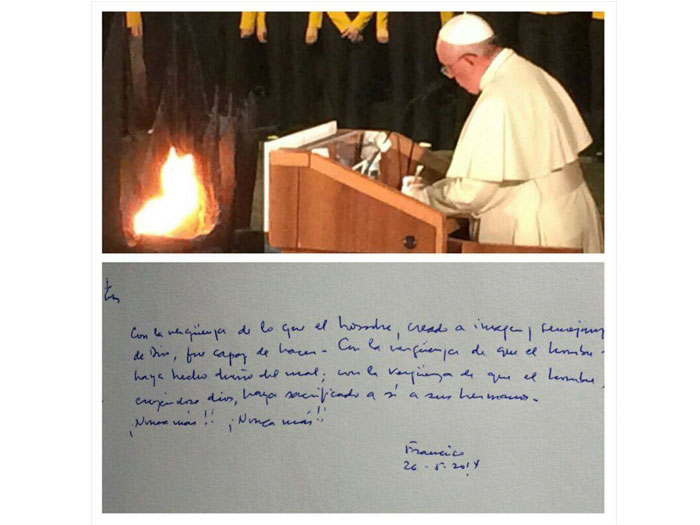 Con la vergüenza de lo que el hombre, creado a imagen y semejanz
de Dios, fue capaz de hacer - Con la vergüenza de que el hombre
haya hecho dueño del mal; con la vergüenza de que el hombre,
creyéndose dios, haya sacrificado a sí a sus hermanos -
¡Nunca más!! ¡Nunca más!!
Francisco
26-5-2014